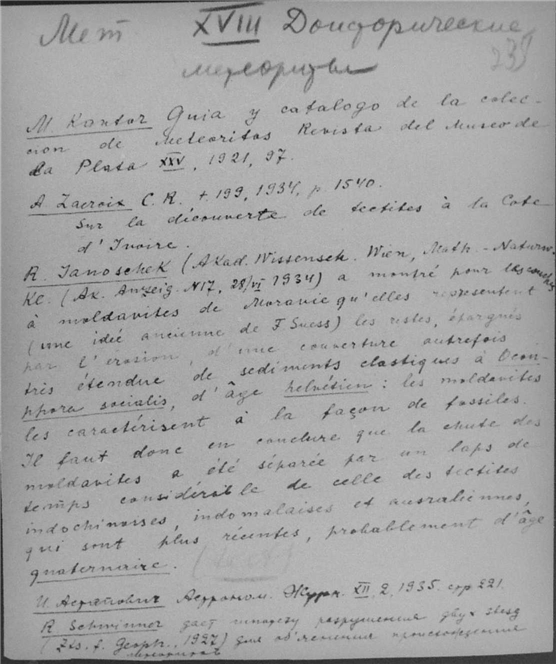 Мет XVIII Доисторические 239
метеориты
M Kantor Guia y catalogo de la colec-
cion de Meteoritos Revista del Museo de
La Plata XXV, 1921, 97.
A. Lacroix C. R., t. 199, 1934, p. 1540.
Sur la découverte de tectites à la Cote
d'Ivoire.
R. Janoschek (Akad. Wissensch. Wien, Math.-Naturw.
Kl. (Ak. Anzeig. N17, 28/VI 1934) a montré pour les couches
à moldavites de Moravie qu'elles representent
(une idée ancienne de F Suess) les restes, épargnés
par l'erosion, d'une couverture autrefois
très étendue de sediments clastiques à Ocon-
phora socialis, d'âge helvétien: les moldavites
les caractérisent à la façon de fossiles.
Il faut donc en conclure que la chute des
moldavites a été séparée par un laps de
temps considérable de celle des tectites
indochinoises, indomalaises et australiennes,
qui sont plus récentes, probablement d'âge
quaternaire.
И. Астапович Астроном. Журн. XII, 2, 1935. стр 221.
R Schwinner дает гипотезу разрушения двух звезд
(Zts. f. Geoph., 1927) для объяснения происхождения
метеоритов